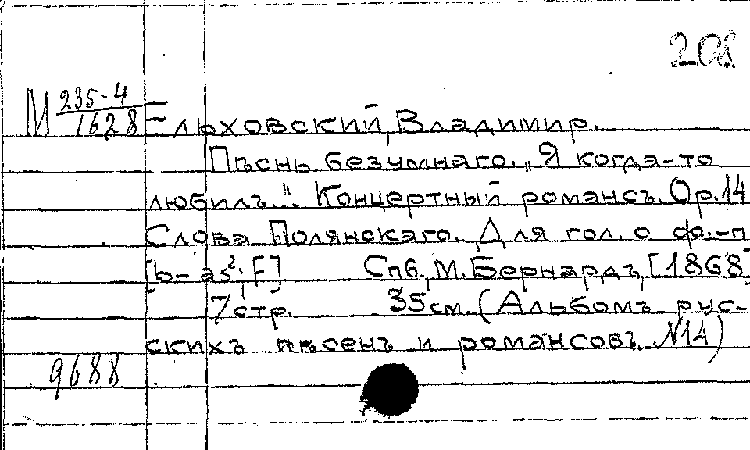 208
М 235-4
1628
Елховский, Владимир.
Пѣснь безумнаго. „Я когда-то
любилъ..." Концертный романсъ. Ор.14
Слова Полянскаго. Для гол. с ф.-п
[b-as², F] Спб., М. Бернардъ, [1868]
7 стр. 35 см. (Альбомъ рус-
скихъ пѣсенъ и романсовъ. №14)
9688